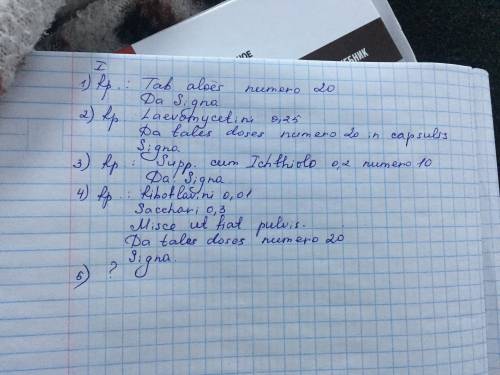 НИК
I
1) Rp.: Tab aloës numero 20
Da Signa
2) Rp. Laevomycetini 0,25
Da tales doses numero 20 in capsulis
Signa.
3) Rp: Supp. cum Ichthiolo 0,2 numero 10
Da. Signa
4) Rp.: Riboflavini 0,01
Sacchari 0,3
Misce ut fiat pulvis.
Da tales doses numero 20
Signa.
5) ?